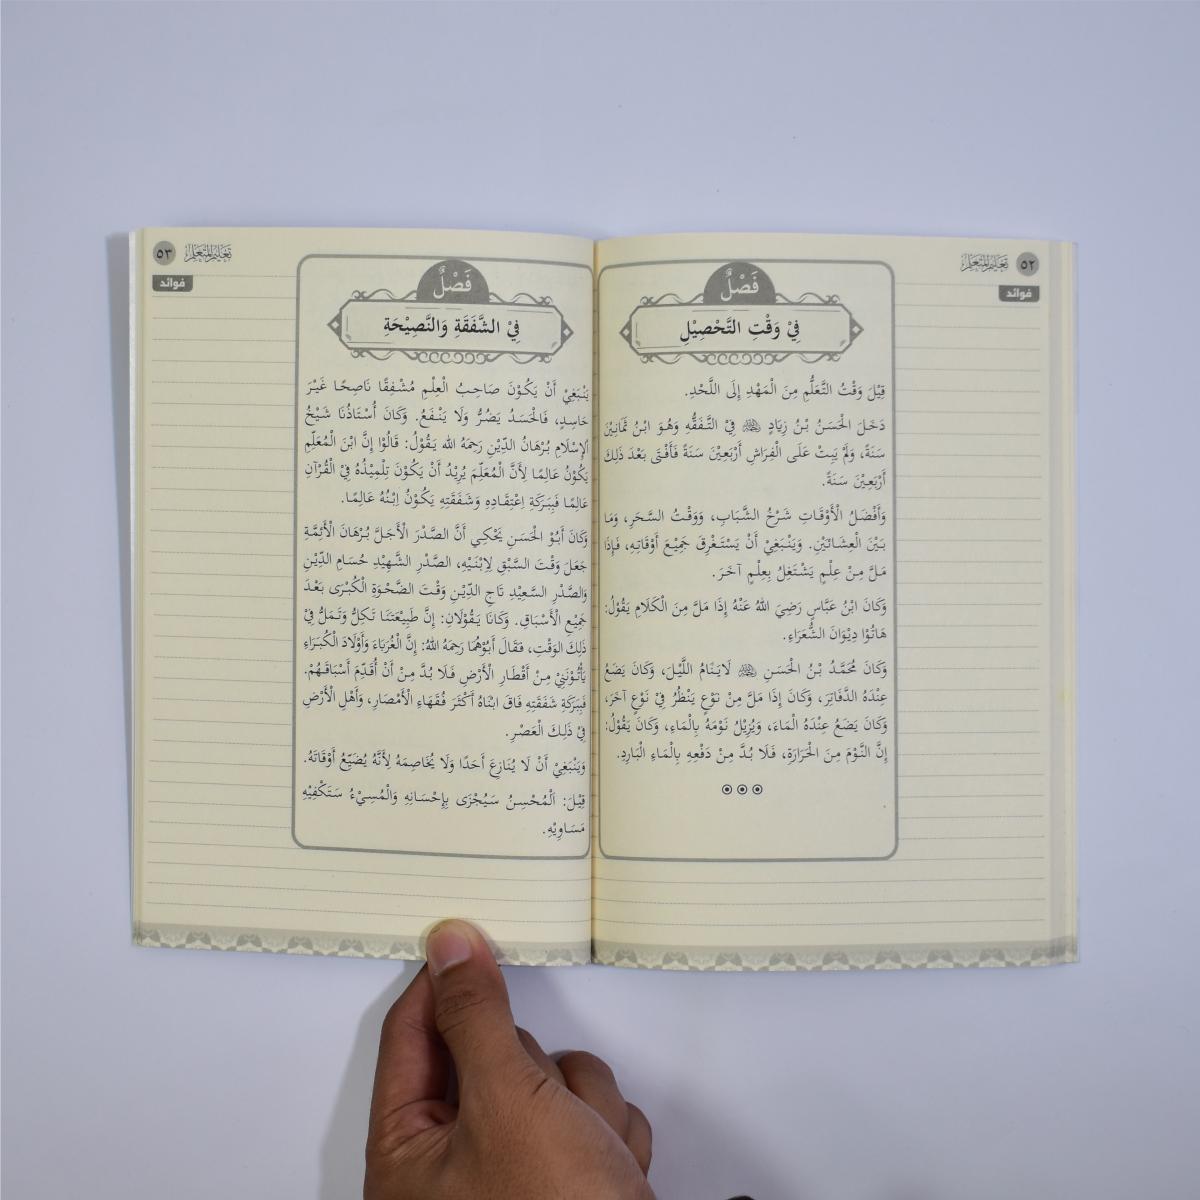 ٥٢
تعليم المتعلم
فوائد
فَصْلٌ
فِيْ وَقْتِ التَّحْصِيْلِ
قِيْلَ وَقْتُ التَّعَلُّمِ مِنَ الْمَهْدِ إِلَى اللَّحْدِ.
دَخَلَ الْحَسَنُ بْنُ زِيَادٍ ﷺ فِيْ التَّفَقُّهِ وَهُوَ ابْنُ ثَمَانِيْنَ
سَنَةً، وَلَمْ يَبِتْ عَلَى الْفِرَاشِ أَرْبَعِيْنَ سَنَةً فَأَفْتَى بَعْدَ ذَلِكَ
أَرْبَعِيْنَ سَنَةً.
وَأَفْضَلُ الْأَوْقَاتِ شَرْخُ الشَّبَابِ، وَوَقْتُ السَّحَرِ، وَمَا
بَيْنَ الْعِشَائَيْنِ. وَيَنْبَغِيْ أَنْ يَسْتَغْرِقَ جَمِيْعَ أَوْقَاتِهِ، فَإِذَا
مَلَّ مِنْ عِلْمٍ يَشْتَغِلُ بِعِلْمٍ آخَرَ.
وَكَانَ ابْنُ عَبَّاسٍ رَضِيَ اللهُ عَنْهُ إِذَا مَلَّ مِنَ الْكَلَامِ يَقُوْلُ:
هَاتُوْا دِيْوَانَ الشُّعَرَاءِ.
وَكَانَ مُحَمَّدُ بْنُ الْحَسَنِ لَايَنَامُ اللَّيْلَ، وَكَانَ يَضَعُ
عِنْدَهُ الدَّفَاتِرَ، وَكَانَ إِذَا مَلَّ مِنْ نَوْعٍ يَنْظُرُ فِيْ نَوْعٍ آخَرَ،
وَكَانَ يَضَعُ عِنْدَهُ الْمَاءَ، وَيُزِيْلُ نَوْمَهُ بِالْمَاءِ، وَكَانَ يَقُوْلُ:
إِنَّ النَّوْمَ مِنَ الْحَرَارَةِ، فَلَا بُدَّ مِنْ دَفْعِهِ بِالْمَاءِ الْبَارِدِ.
٥٣
تعليم المتعلم
فوائد
فَصْلٌ
فِيْ الشَّفَقَةِ وَالنَّصِيْحَةِ
يَنْبَغِيْ أَنْ يَكُوْنَ صَاحِبُ الْعِلْمِ مُشْفِقًا نَاصِحًا غَيْرَ
حَاسِدٍ، فَالْحَسَدُ يَضُرُّ وَلَا يَنْفَعُ. وَكَانَ أُسْتَاذُنَا شَيْخُ
الْإِسْلَامِ بُرْهَانُ الدِّيْنِ رَحِمَهُ الله يَقُوْلُ: قَالُوْا إِنَّ ابْنَ الْمُعَلِّمِ
يَكُوْنُ عَالِمًا لِأَنَّ الْمُعَلِّمَ يُرِيْدُ أَنْ يَكُوْنَ تِلْمِيْذُهُ فِيْ الْقُرْآنِ
عَالِمًا فَبِبَرَكَةِ اِعْتِقَادِهِ وَشَفَقَتِهِ يَكُوْنُ اِبْنُهُ عَالِمًا.
وَكَانَ أَبُوْ الْحَسَنِ يَحْكِي أَنَّ الصَّدْرَ الْأَجَلَّ بُرْهَانَ الْأَئِمَّةِ
جَعَلَ وَقْتَ السَّبْقِ لِابْنَيْهِ، الصَّدْرِ الشَّهِيْدِ حُسَامِ الدِّيْنِ
وَالصَّدْرِ السَّعِيْدِ تَاجِ الدِّيْنِ وَقْتَ الضَّحْوَةِ الْكُبْرَى بَعْدَ
جَمِيْعِ الْأَسْبَاقِ. وَكَانَا يَقُوْلَانِ: إِنَّ طَبِيْعَتَنَا تَكِلُّ وَتَمَلُّ فِيْ
ذَلِكَ الْوَقْتِ، فَقَالَ أَبُوْهُمَا رَحِمَهُ اللهُ: إِنَّ الْغُرَبَاءَ وَأَوْلَادَ الْكُبَرَاءِ
يَأْتُوْنَنِيْ مِنْ أَقْطَارِ الْأَرْضِ فَلَا بُدَّ مِنْ أَنْ أُقَدِّمَ أَسْبَاقَهُمْ.
فَبِبَرَكَةِ شَفَقَتِهِ فَاقَ ابْنَاهُ أَكْثَرَ فُقَهَاءِ الْأَمْصَارِ، وَأَهْلِ الْأَرْضِ
فِيْ ذَلِكَ الْعَصْرِ.
وَيَنْبَغِيْ أَنْ لَا يُنَازِعَ أَحَدًا وَلَا يُخَاصِمَهُ لِأَنَّهُ يُضَيِّعُ أَوْقَاتَهُ.
قِيْلَ: اَلْمُحْسِنُ سَيُجْزَى بِإِحْسَانِهِ وَالْمُسِيْءُ سَتَكْفِيْهِ
مَسَاوِيْهِ.